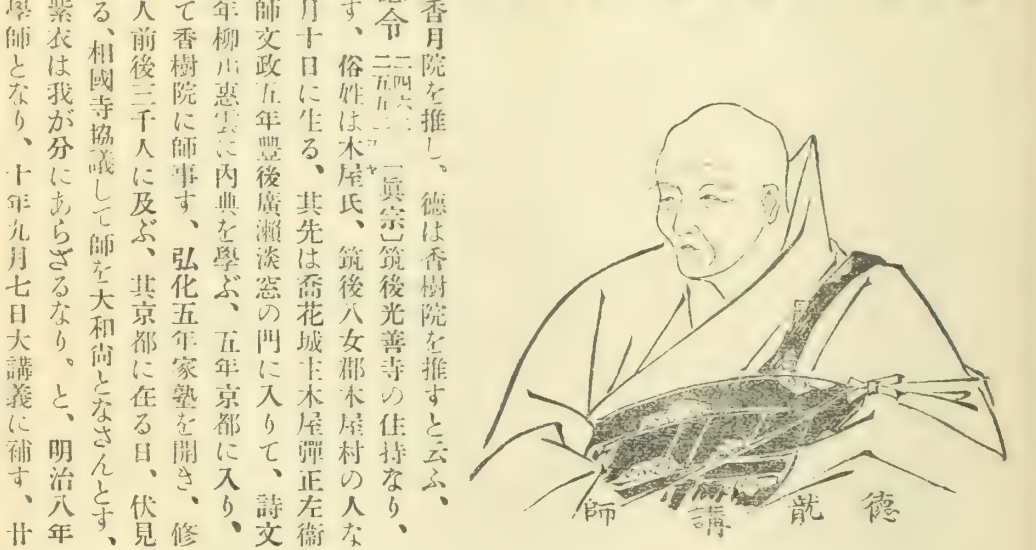 香月院を推し、德は香樹院を推すと云ふ、
令 [眞宗]筑後光善寺の住持なり、
す、俗姓は木屋氏、筑後八女郡木屋村の人な
月十日に生る、其先は喬花城主木屋彈正左衞
師文政五年豐後廣瀨淡窓の門に入りて、詩文
年柳川惠雲に内典を學ぶ、五年京都に入り、
て香樹院に師事す、弘化五年家塾を開き、修
人前後三千人に及ぶ、其京都に在る日、伏見
る、相國寺協議して師を大和尙となさんとす、
紫衣は我が分にあらざるなり。と、明治八年
學師となり、十年九月七日大講義に補す、廿
德龍講師